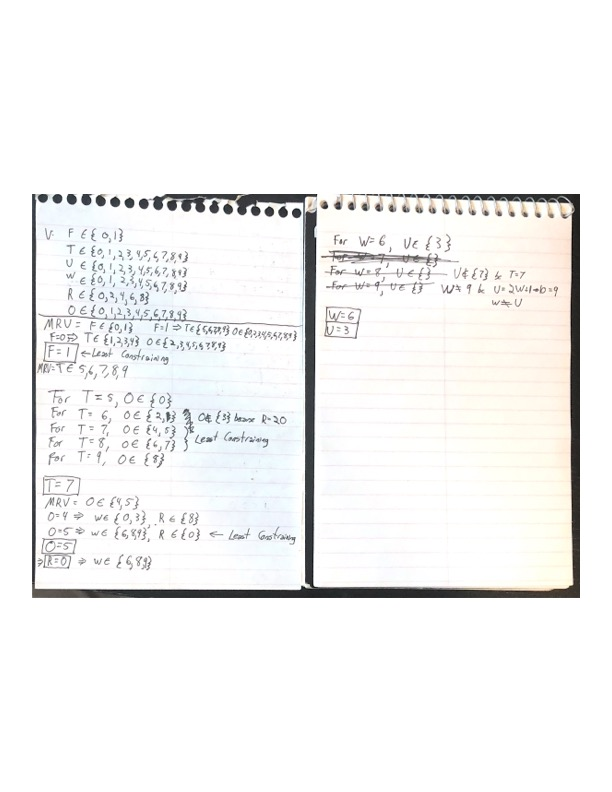 V: F ∈ {0,1}
T ∈ {0,1,2,3,4,5,6,7,8,9}
U ∈ {0,1,2,3,4,5,6,7,8,9}
W ∈ {0,1,2,3,4,5,6,7,8,9}
R ∈ {0,2,4,6,8}
O ∈ {0,1,2,3,4,5,6,7,8,9}
MRV = F ∈ {0,1} F=1 ⇒ T ∈ {5,6,7,8,9} O ∈ {0,2,3,4,5,6,7,8,9}
F=0 ⇒ T ∈ {1,2,3,4} O ∈ {2,3,4,5,6,7,8,9}
F=1 ← Least Constraining
MRV = T ∈ 5,6,7,8,9
For T=5, O ∈ {0}
For T=6, O ∈ {2,} O ∉ {3} because R=2O
For T=7, O ∈ {4,5}
For T=8, O ∈ {6,7} Least Constraining
For T=9, O ∈ {8}
T=7
MRV = O ∈ {4,5}
O=4 ⇒ W ∈ {0,3}, R ∈ {8}
O=5 ⇒ W ∈ {6,8,9}, R ∈ {0} ← Least Constraining
O=5
⇒ R=0 ⇒ W ∈ {6,8,9}
For W=6, U ∈ {3}
For W=7, U ∈ {}
For W=8, U ∈ {} U ∉ {7} & T=7
For W=9, U ∈ {} W≠9 & U=2W+1-10=9
W≠U
W=6
U=3